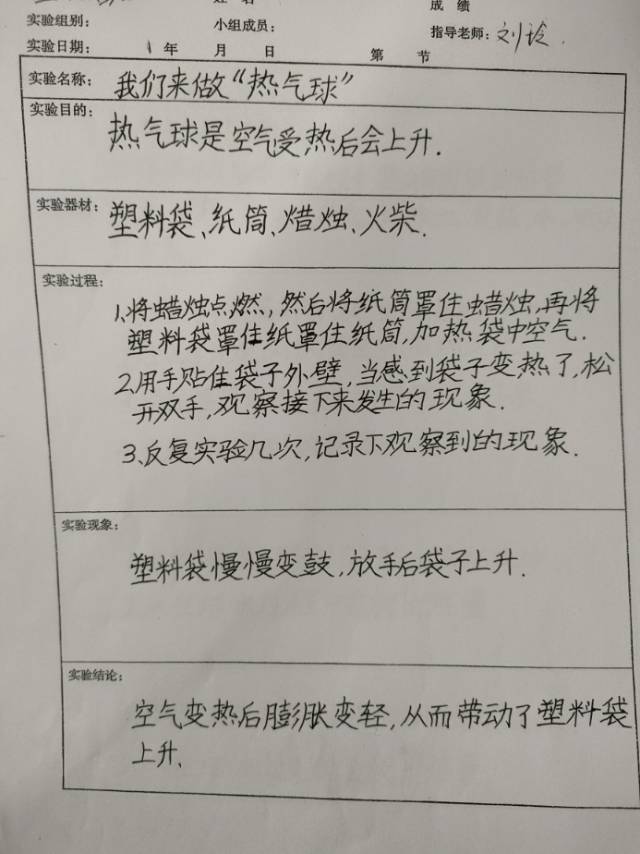 成 绩
实验组别： 小组成员： 指导老师：刘玲.
实验日期： 年 月 日 第 节
实验名称： 我们来做“热气球”
实验目的：
热气球是空气受热后会上升.
实验器材： 塑料袋、纸筒、焟烛、火柴.
实验过程：
1.将蜡烛点燃，然后将纸筒罩住蜡烛,再将
塑料袋罩住纸罩住纸筒,加热袋中空气.
2.用手贴住袋子外壁,当感到袋子变热了,松
开双手,观察接下来发生的现象.
3.反复实验几次,记录下观察到的现象.
实验现象：
塑料袋慢慢变鼓,放手后袋子上升.
实验结论：
空气变热后膨胀变轻,从而带动了塑料袋
上升.